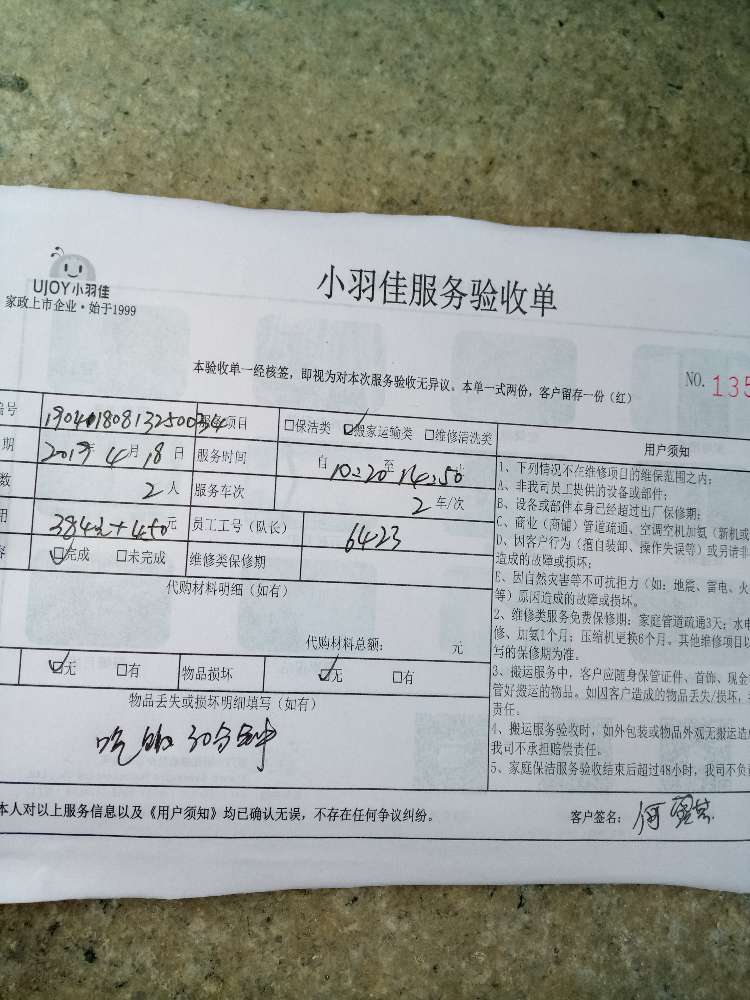 UJOY小羽佳
家政上市企业·始于1999
小羽佳服务验收单
本验收单一经核签，即视为对本次服务验收无异议。本单一式两份，客户留存一份（红）
NO. 135
编号 服务项目 □保洁类 ☑搬家运输类 □维修清洗类
期 2019年4月18日 服务时间 自10:20至14:50止
数 2人 服务车次 2车/次
用 384元+450元 员工工号（队长） 6423
容 ☑完成 □未完成 维修类保修期
代购材料明细（如有）
代购材料总额： 元
☑无 □有 物品损坏 ☑无 □有
物品丢失或损坏明细填写（如有）
吃饭30分钟
用户须知
1、下列情况不在维修项目的维保范围之内：
A、非我司员工提供的设备或部件；
B、设备或部件本身已经超过出厂保修期；
C、商业（商铺）管道疏通、空调空机加氨（新机或
D、因客户行为（擅自装卸、操作失误等）或另请非
造成的故障或损坏；
E、因自然灾害等不可抗拒力（如：地震、雷电、火
等）原因造成的故障或损坏。
2、维修类服务免费保修期：家庭管道疏通3天；水电
修、加氨1个月；压缩机更换6个月。其他维修项目以
写的保修期为准。
3、搬运服务中，客户应随身保管证件、首饰、现金
管好搬运的物品。如因客户造成的物品丢失/损坏，
责任。
4、搬运服务验收时，如外包装或物品外观无搬运造
我司不承担赔偿责任。
5、家庭保洁服务验收结束后超过48小时，我司不负
本人对以上服务信息以及《用户须知》均已确认无误，不存在任何争议纠纷。
客户签名：何